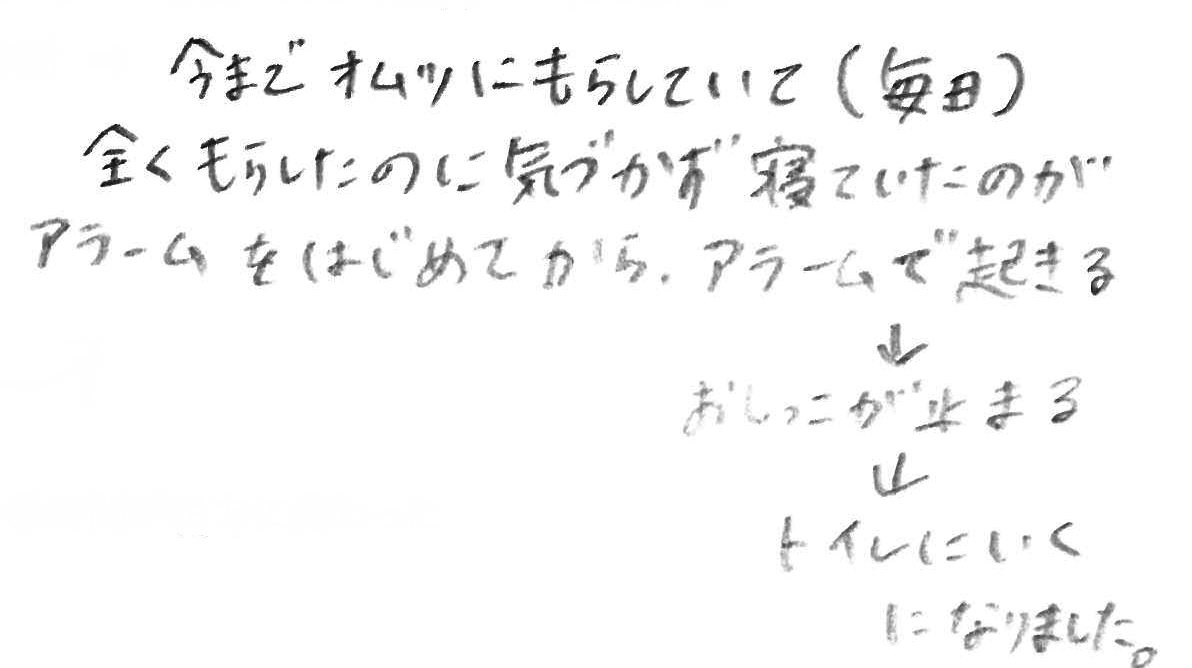 今まで オムツにもらしていて（毎日）
全くもらしたのに気づかず寝ていたのが
アラームをはじめてから、アラームで起きる
↓
おしっこが止まる
↓
トイレにいく
になりました。